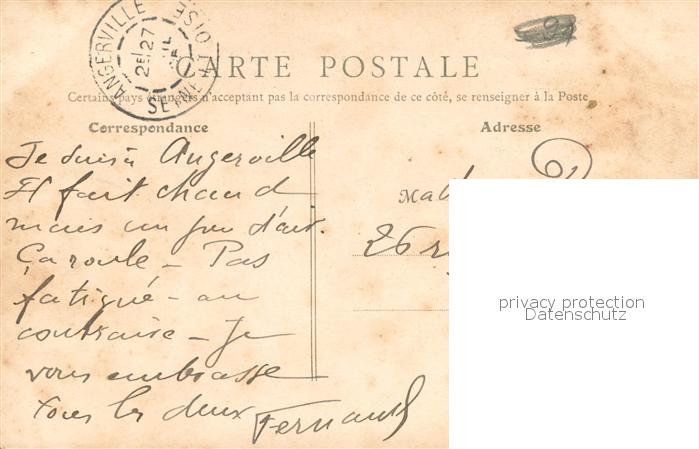 ANGERVILLE
SEINE-ET-OISE
27
CARTE POSTALE
Certains pays étrangers n'acceptant pas la correspondance de ce côté, se renseigner à la Poste
Correspondance
Adresse
Je suis à Angerville
Il fait chaud
mais un peu d'air.
Ça roule - Pas
fatigué - au
contraire - Je
vous embrasse
tous les deux
Fernand
M
26 r
privacy protection
Datenschutz